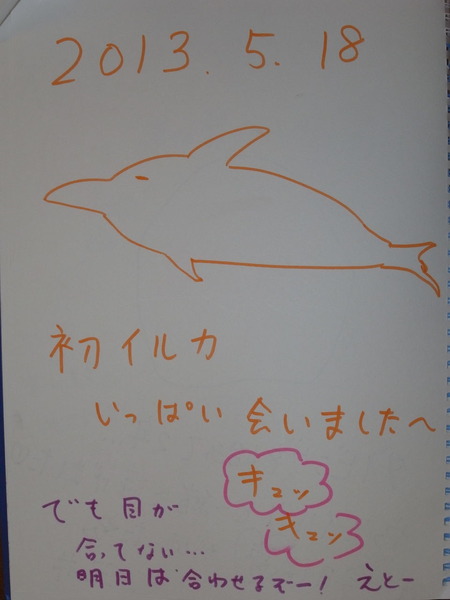 2013.5.18
初イルカ
いっぱい会いました〜
キュッ
キュッ
でも目が
合ってない…
明日は合わせるぞー! えとー